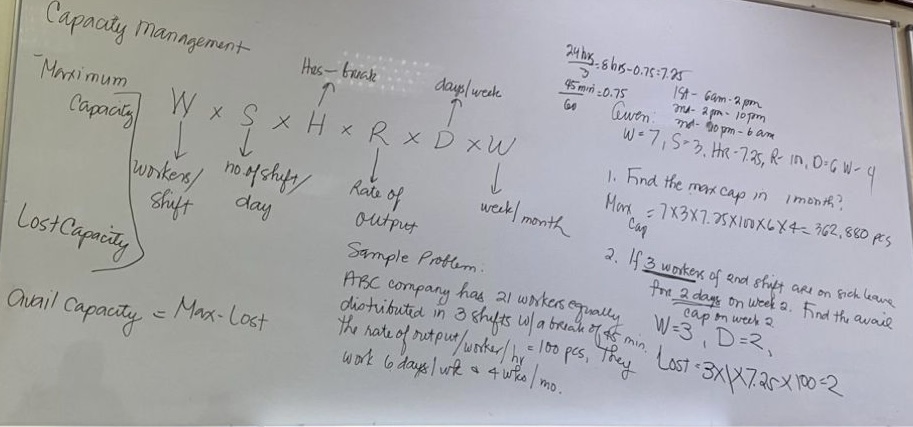 Capacity Management
Maximum
Capacity
W x S x H x R x D x W
Hrs - break
days/week
workers/
shift
no. of shift/
day
Rate of
output
week/month
Lost Capacity
Avail Capacity = Max - Lost
Sample Problem:
ABC company has 21 workers equally
distributed in 3 shifts w/ a break of 45 min.
the rate of output/worker/hr = 100 pcs, They
work 6 days/wk & 4 wks/mo.
24 hrs
3
= 8 hrs - 0.75 = 7.25
45 min
60
= 0.75
1st - 6am - 2pm
2nd - 2pm - 10pm
10pm - 6am
Given:
W = 7, S = 3, HR - 7.25, R - 100, D = 6 W - 4
1. Find the max cap in 1 month?
Max
Cap
= 7x3x7.25x100x6x4 = 362,880 pcs
2. If 3 workers of 2nd shift are on sick leave
for 2 days on week 2. Find the avail
cap on week 2
W = 3, D = 2,
Lost = 3x1x7.25x100=2